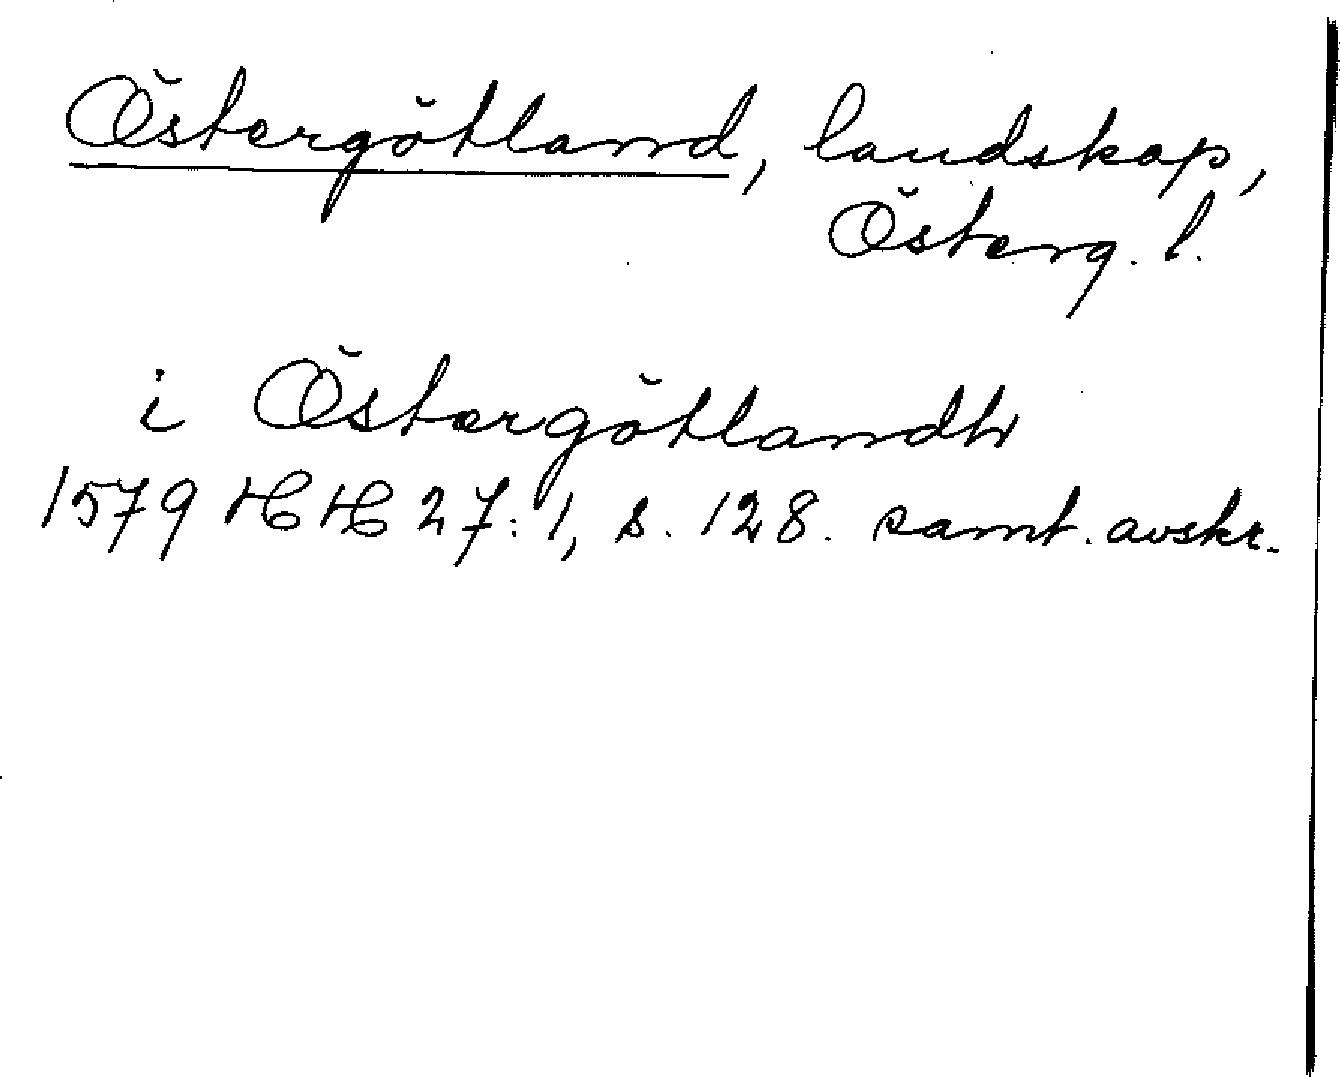 Östergötland, landskap,
Österg. l.
i Östergötlandh
1579 HH 27:1, s. 128. samt. avskr.